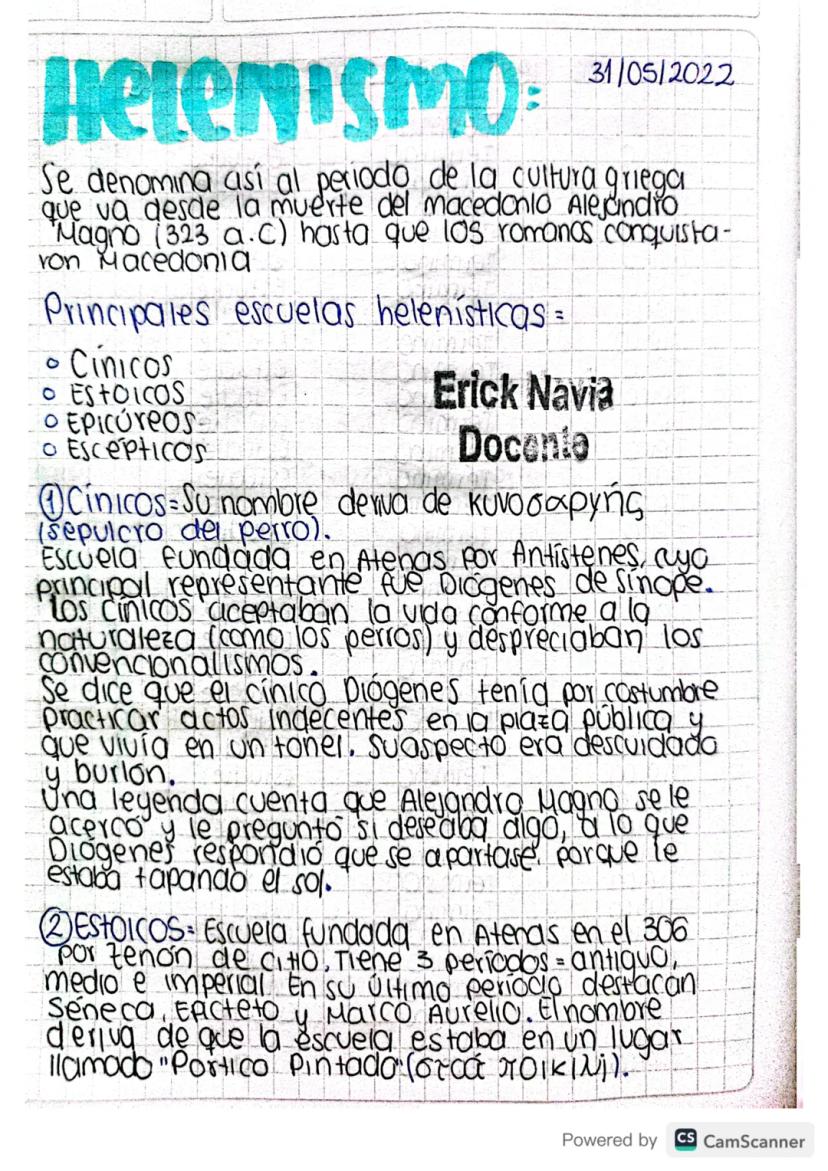 Helenismo:
31/05/2022
Se denomina así al periodo de la cultura griega
que va desde la muerte del macedonio Alejandro
Magno (323 a.C) hasta que los romanos conquista-
ron Macedonia
Principales escuelas helenísticas =
o Cínicos
o Estoicos
o Epicúreos
o Escépticos
Erick Navia
Docente
① Cínicos = Su nombre deriva de κυνοσαργής
(sepulcro del perro).
Escuela fundada en Atenas por Antístenes, cuyo
principal representante fue Diógenes de Sinope.
Los cínicos aceptaban la vida conforme a la
naturaleza (como los perros) y despreciaban los
convencionalismos.
Se dice que el cínico Diógenes tenía por costumbre
practicar actos indecentes en la plaza pública y
que vivía en un tonel. Su aspecto era descuidado
y burlón.
Una leyenda cuenta que Alejandro Magno se le
acercó y le preguntó si deseaba algo, a lo que
Diógenes respondió que se apartase, porque le
estaba tapando el sol.
② Estoicos = Escuela fundada en Atenas en el 306
por Zenón de Citio. Tiene 3 períodos = antiguo,
medio e imperial. En su último período destacan
Séneca, Epicteto y Marco Aurelio. El nombre
deriva de que la escuela estaba en un lugar
llamado "Pórtico Pintado" (στοά ποικιλή).
Powered by CS CamScanner